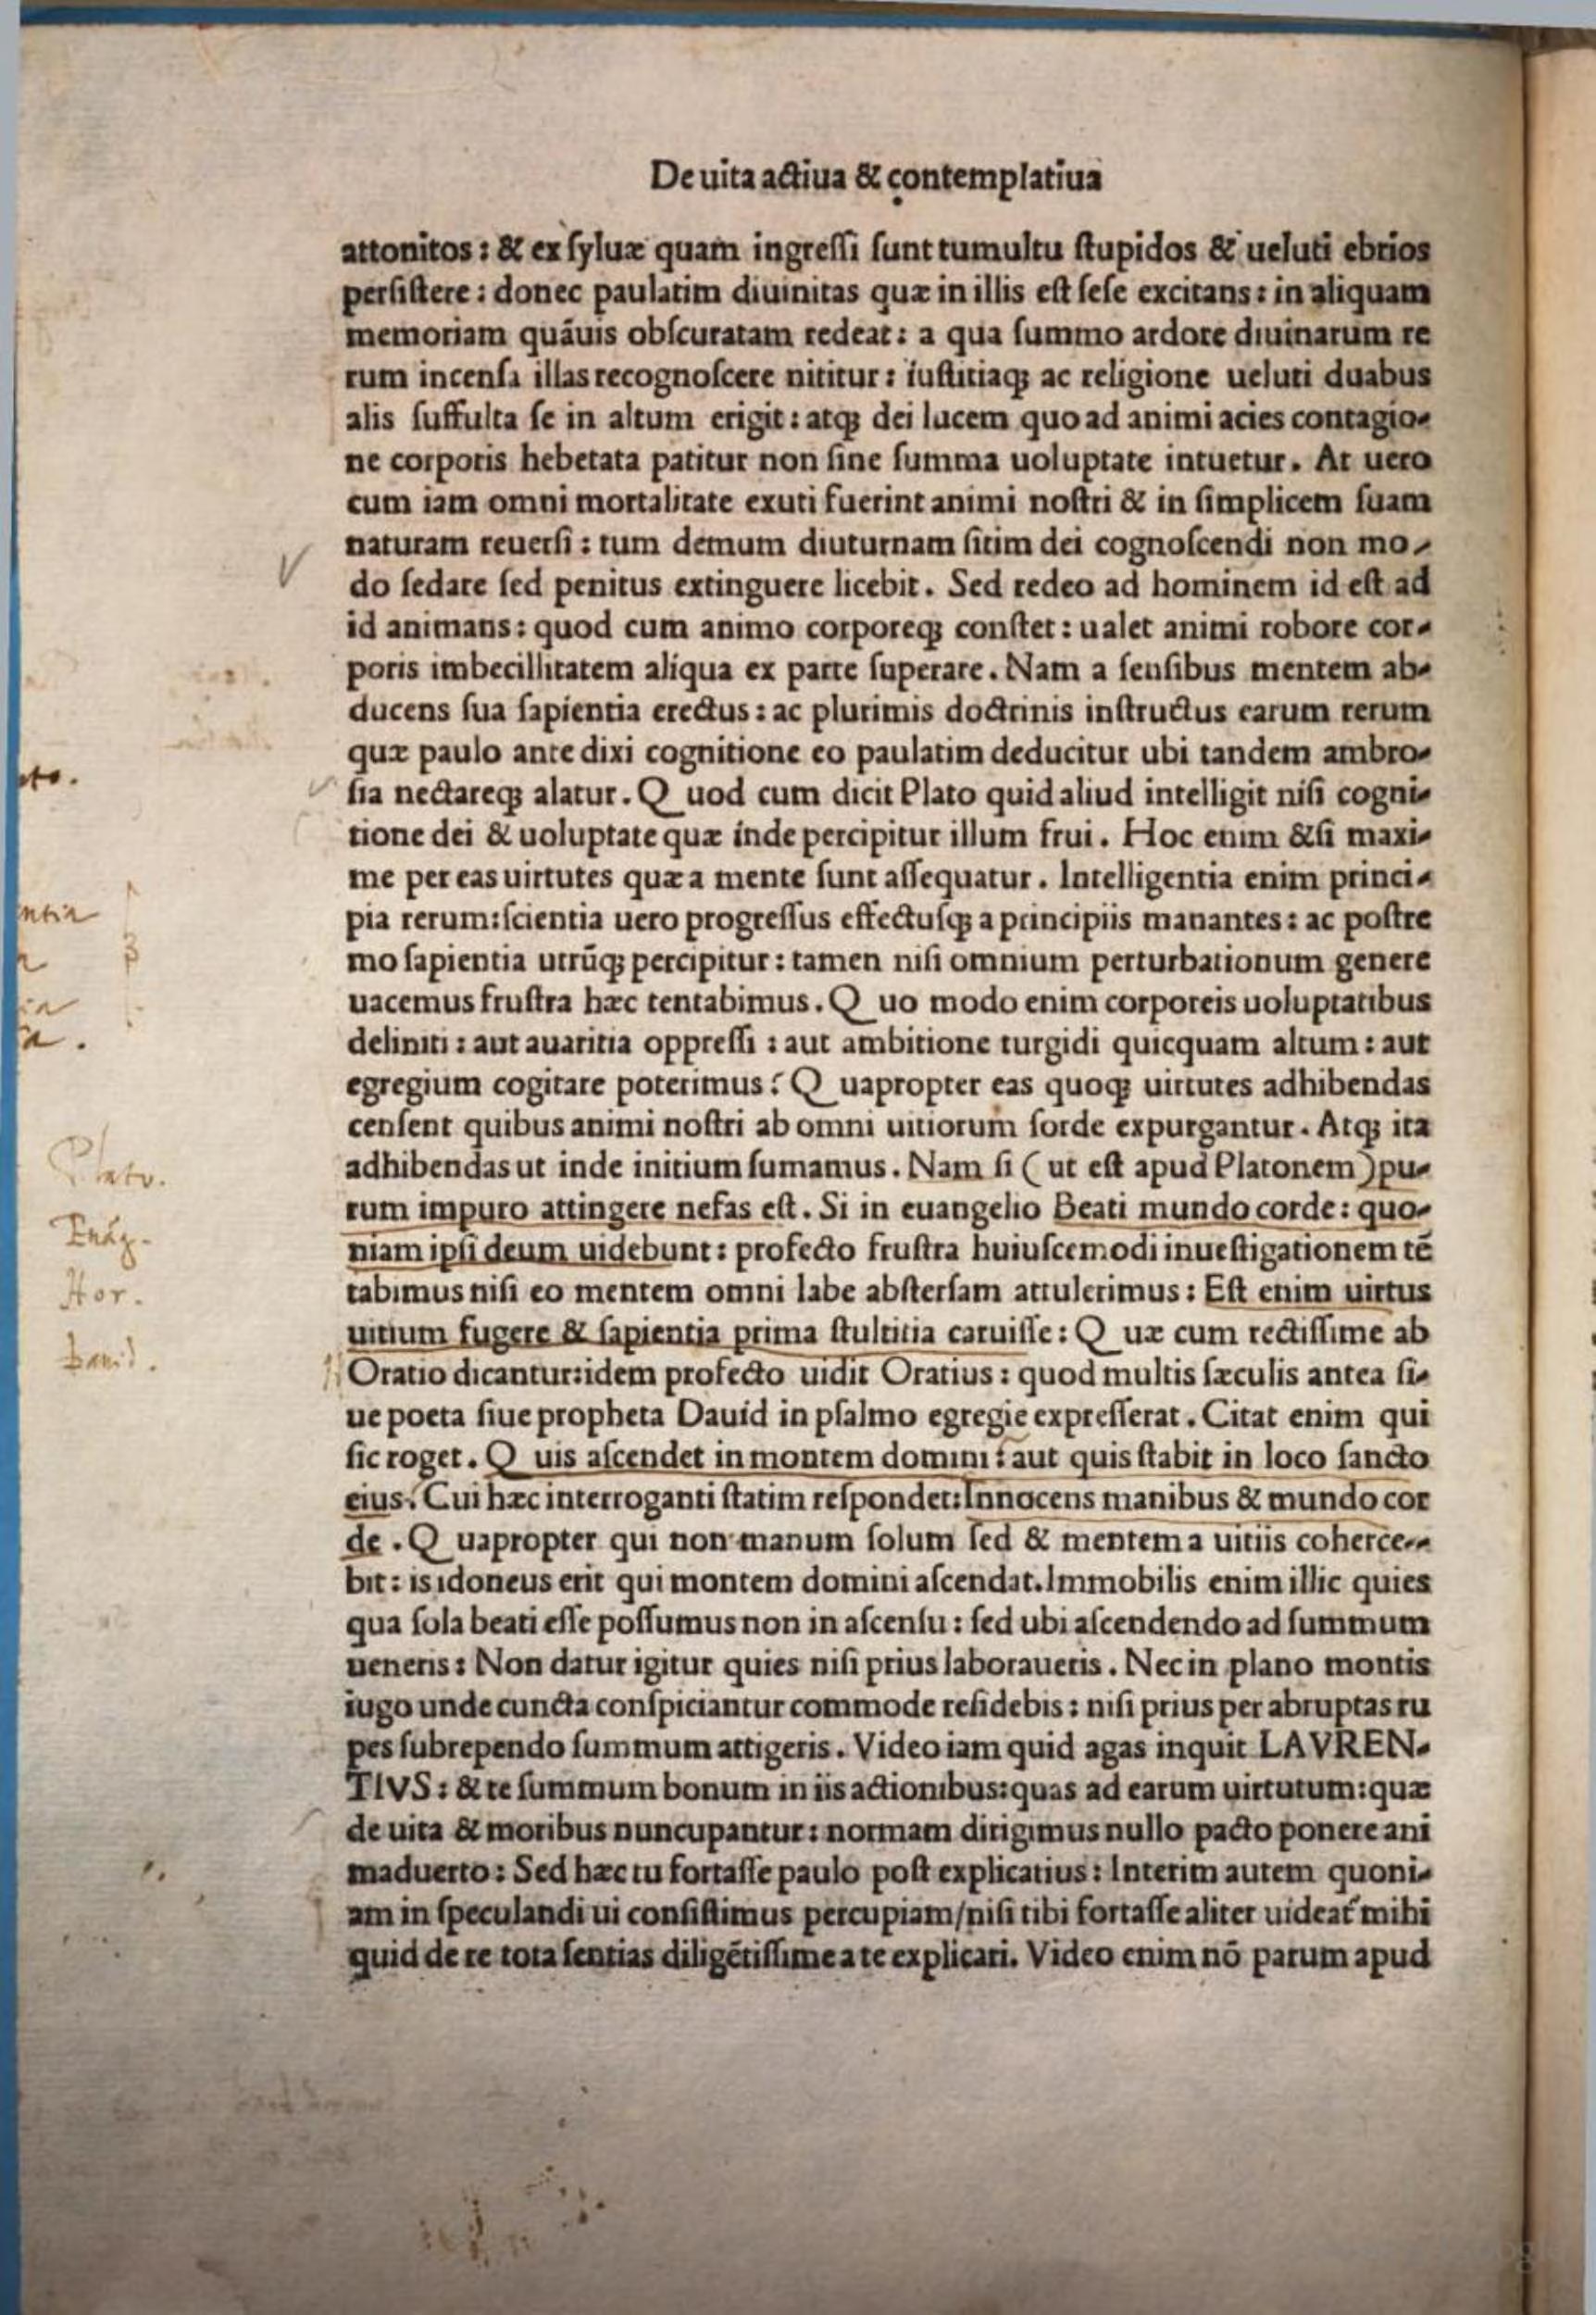 De uita actiua & contemplatiua
attonitos : & ex syluæ quam ingressi sunt tumultu stupidos & ueluti ebrios
persistere : donec paulatim diuinitas quæ in illis est sese excitans : in aliquam
memoriam quāuis obscuratam redeat : a qua summo ardore diuinarum re
rum incensa illas recognoscere nititur : iustitiaqꝫ ac religione ueluti duabus
alis suffulta se in altum erigit : atqꝫ dei lucem quo ad animi acies contagio-
ne corporis hebetata patitur non sine summa uoluptate intuetur. At uero
cum iam omni mortalitate exuti fuerint animi nostri & in simplicem suam
naturam reuersi : tum demum diuturnam sitim dei cognoscendi non mo-
do sedare sed penitus extinguere licebit. Sed redeo ad hominem id est ad
id animans : quod cum animo corporeqꝫ constet : ualet animi robore cor-
poris imbecillitatem aliqua ex parte superare. Nam a sensibus mentem ab-
ducens sua sapientia erectus : ac plurimis doctrinis instructus earum rerum
quæ paulo ante dixi cognitione eo paulatim deducitur ubi tandem ambro-
sia nectareqꝫ alatur. Quod cum dicit Plato quid aliud intelligit nisi cogni-
tione dei & uoluptate quæ inde percipitur illum frui. Hoc enim &si maxi-
me per eas uirtutes quæ a mente sunt assequatur. Intelligentia enim princi-
pia rerum:scientia uero progressus effectusqꝫ a principiis manantes : ac postre
mo sapientia utrūqꝫ percipitur : tamen nisi omnium perturbationum genere
uacemus frustra hæc tentabimus. Quo modo enim corporeis uoluptatibus
deliniti : aut auaritia oppressi : aut ambitione turgidi quicquam altum : aut
egregium cogitare poterimus? Quapropter eas quoqꝫ uirtutes adhibendas
censent quibus animi nostri ab omni uitiorum sorde expurgantur. Atqꝫ ita
adhibendas ut inde initium sumamus. Nam si ( ut est apud Platonem ) pu-
rum impuro attingere nefas est. Si in euangelio Beati mundo corde : quo-
niam ipsi deum uidebunt : profecto frustra huiuscemodi inuestigationem tē
tabimus nisi eo mentem omni labe abstersam attulerimus : Est enim uirtus
uitium fugere & sapientia prima stultitia caruisse : Quæ cum rectissime ab
Oratio dicantur:idem profecto uidit Oratius : quod multis sæculis antea si-
ue poeta siue propheta Dauid in psalmo egregie expresserat. Citat enim qui
sic roget. Quis ascendet in montem domini? aut quis stabit in loco sancto
eius? Cui hæc interroganti statim respondet:Innocens manibus & mundo cor
de. Quapropter qui non manum solum sed & mentem a uitiis coherce-
bit : is idoneus erit qui montem domini ascendat. Immobilis enim illic quies
qua sola beati esse possumus non in ascensu : sed ubi ascendendo ad summum
ueneris : Non datur igitur quies nisi prius laboraueris. Nec in plano montis
iugo unde cuncta conspiciantur commode residebis : nisi prius per abruptas ru
pes subrependo summum attigeris. Video iam quid agas inquit LAVREN-
TIVS : & te summum bonum in iis actionibus:quas ad earum uirtutum:quæ
de uita & moribus nuncupantur : normam dirigimus nullo pacto ponere ani
maduerto : Sed hæc tu fortasse paulo post explicatius : Interim autem quoni-
am in speculandi ui consistimus percupiam/nisi tibi fortasse aliter uideat᷑ mihi
quid de re tota sentias diligētissime a te explicari. Video enim nō parum apud
Plato.
Euāg.
Hor.
Dauid.